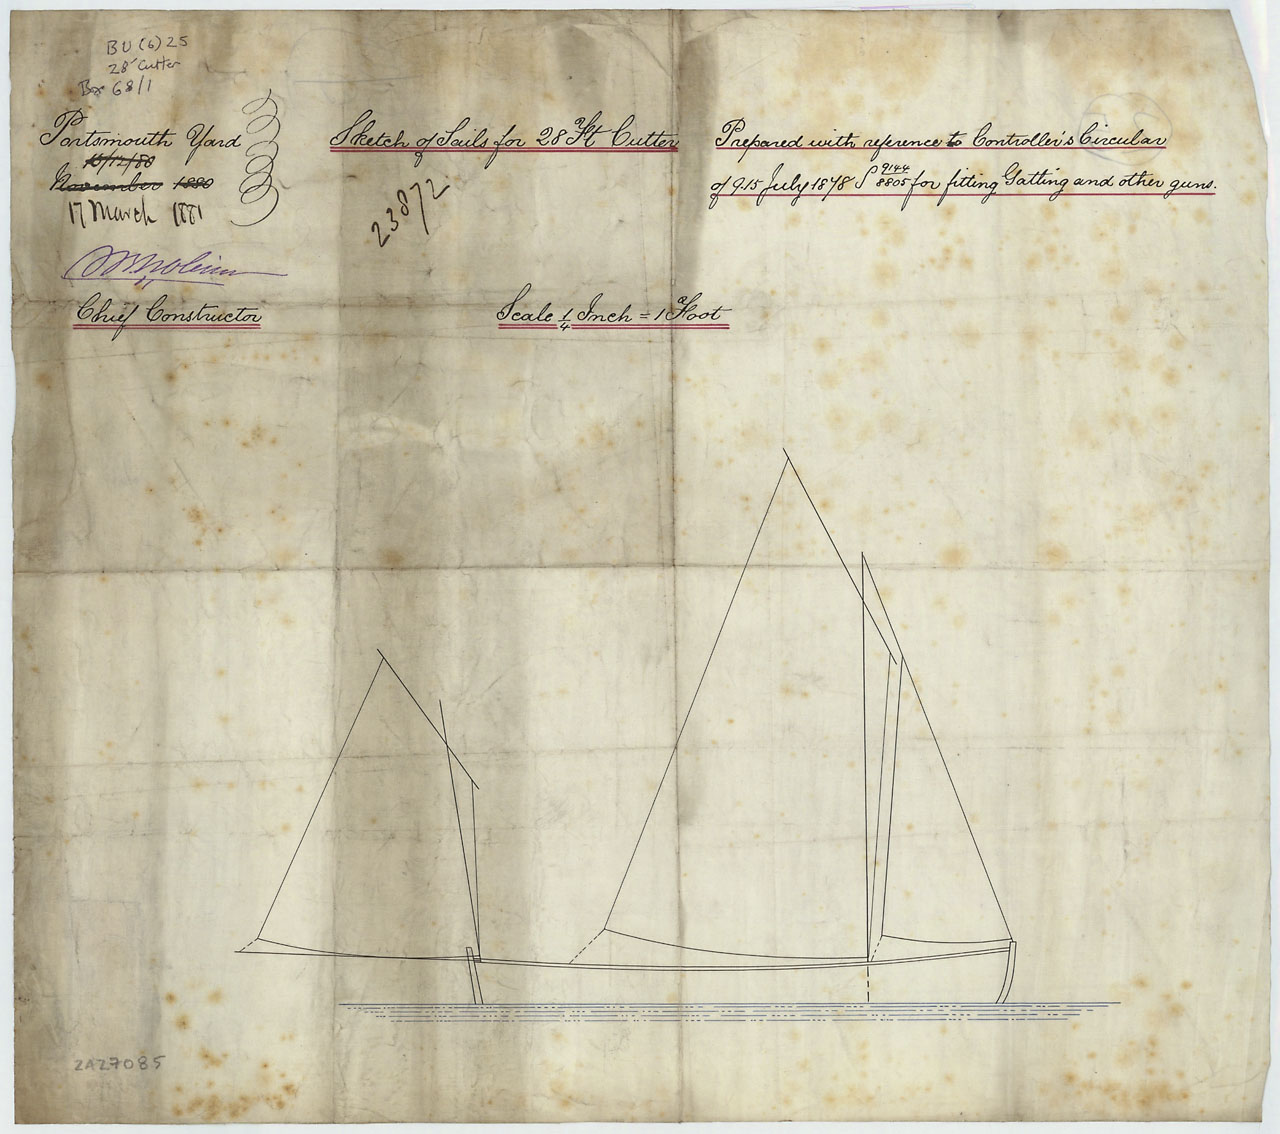 BU(6)25
28' Cutter
Box 68/1
Portsmouth Yard
15/12/80
November 1880
17 March 1881
Chief Constructor
Sketch of Sails for 28 Ft Cutter
23872
Scale 1/4 Inch = 1 Foot
Prepared with reference to Controller's Circular
of 9.15 July 1878 S 9144/8805 for fitting Gatling and other guns.
ZAZ7085